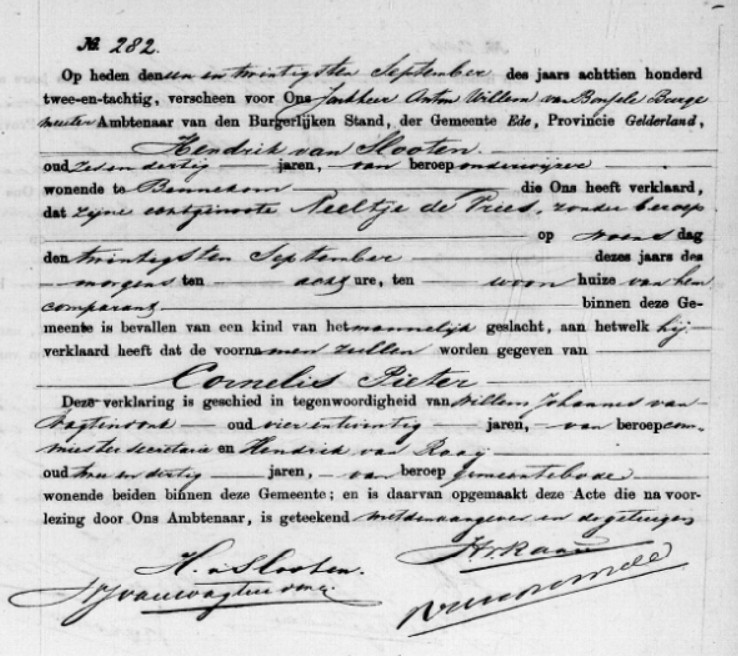 No. 282.
Op heden den een en twintigsten September des jaars achttien honderd
twee-en-tachtig, verscheen voor Ons Jonkheer Anton Willem van Borssele Burge
meester Ambtenaar van den Burgerlijken Stand, der Gemeente Ede, Provincie Gelderland,
Hendrik van Slooten
oud zes en dertig jaren, van beroep onderwijzer
wonende te Bennekom die Ons heeft verklaard,
dat zijne echtgenoote Neeltje de Vries, zonder beroep
op woensdag
den twintigsten September dezes jaars des
morgens ten acht ure, ten woon huize van hem
comparant binnen deze Ge-
meente is bevallen van een kind van het mannelijk geslacht, aan hetwelk hij
verklaard heeft dat de voornamen zullen worden gegeven van
Cornelis Pieter
Deze verklaring is geschied in tegenwoordigheid van Willem Johannes van
Wagtendonk oud vier en twintig jaren, van beroep com-
mies ter secretarie en Hendrik van Raaij
oud twee en dertig jaren, van beroep gemeentebode
wonende beiden binnen deze Gemeente; en is daarvan opgemaakt deze Acte die na voor-
lezing door Ons Ambtenaar, is geteekend met den aangever en de getuigen
H. v Slooten.
H. v. Raaij
WJ van Wagtendonk